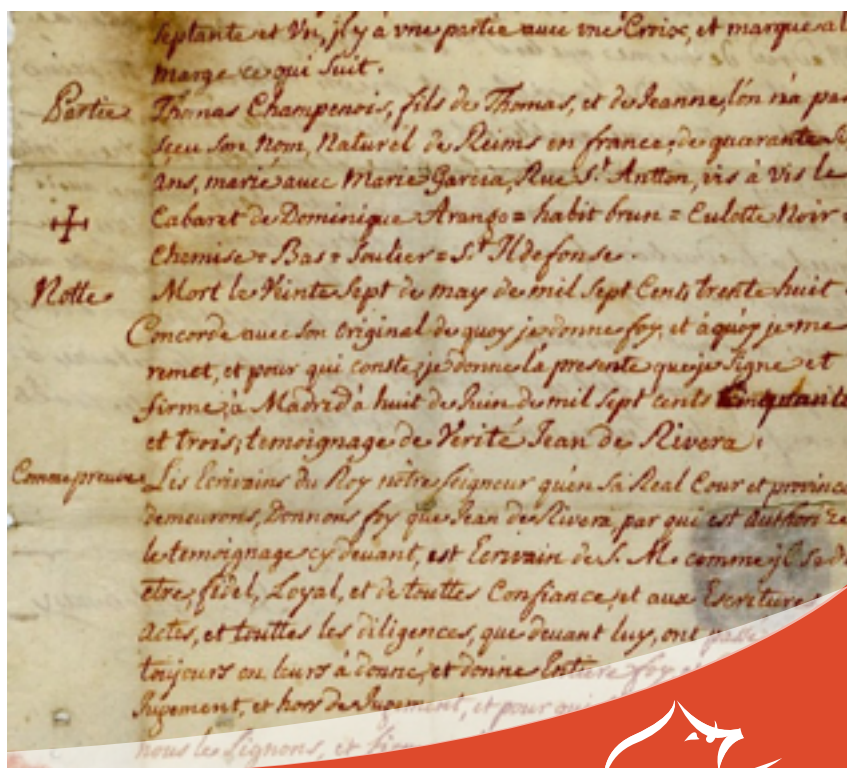 septante et Vn, jl y à vne partie auec vne Croix, et marque a l
marge ce qui suit.
Partie Thomas Champenois, fils de Thomas, et de Jeanne, l'on n'a pas
sçeu son Nom, Naturel de Reims en france, de quarante
ans, marié auec Marie Garcia, Rue St Antton, vis à vis le
Cabaret de Dominique Arango = habit brun = Culotte Noir =
Chemise = Bas = soulier = St Jldefonse
Notte Mort le Veinte sept de may de mil sept Cents trente huit
Concorde auec son original de quoy je donne foy, et à quoy je me
remet, et pour qui conste, je donne la presente que je signe et
firme, à Madrid à huit de Juin de mil sept cents Cinquante
et trois, temoignage de Verité Jean de Rivera.
Comme preuue Les Ecrivains du Roy nôtre seigneur qu'en sa Real Cour et province
demeurons, Donnons foy que Jean de Rivera, par qui est authorizé
le temoignage cy deuant, est Ecrivain de S. M. comme jl se d
être, fidel, Loyal, et de touttes Confiance, et aux Escritures
actes, et touttes les diligences, que deuant luy, ont passé
toujours on leurs à donné, et donne Entiere foy
Jugement, et hors de Jugement, et pour qui
nous les signons, et